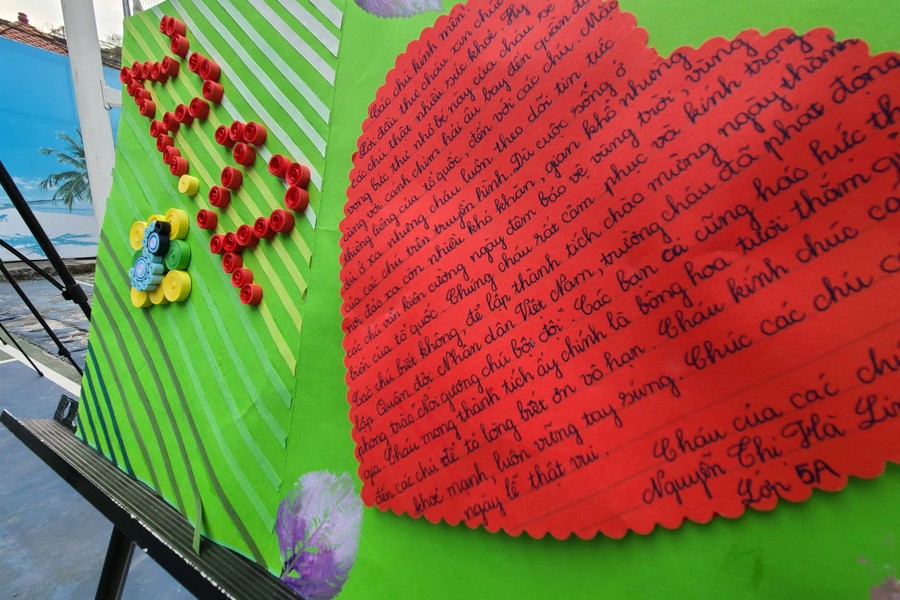 Các chú kính mến!
Lời đầu thư cháu xin chúc
các chú thật nhiều sức khoẻ. Hy
vọng bức thư nhỏ bé này của cháu sẽ
cùng với cánh chim hải âu bay đến quần đảo
thiêng liêng của tổ quốc, đến với các chú. Mặc
dù ở xa nhưng cháu luôn theo dõi tin tức
của các chú trên truyền hình. Dù cuộc sống ở
nơi đảo xa còn nhiều khó khăn, gian khổ nhưng
các chú vẫn kiên cường ngày đêm bảo vệ vùng trời, vùng
biển của tổ quốc. Chúng cháu rất cảm phục và kính trọng
Các chú biết không, để lập thành tích chào mừng ngày thành
lập Quân đội Nhân dân Việt Nam, trường cháu đã phát động
phong trào "Noi gương chú bộ đội". Các bạn ai cũng háo hức
gia. Cháu mong thành tích ấy chính là bông hoa tươi thắm
đến các chú để tỏ lòng biết ơn vô hạn. Cháu kính chúc
khoẻ mạnh, luôn vững tay súng. Chúc các chú
ngày lễ thật vui.
Cháu của các chú
Nguyễn Thị Hà
Lớp 5A